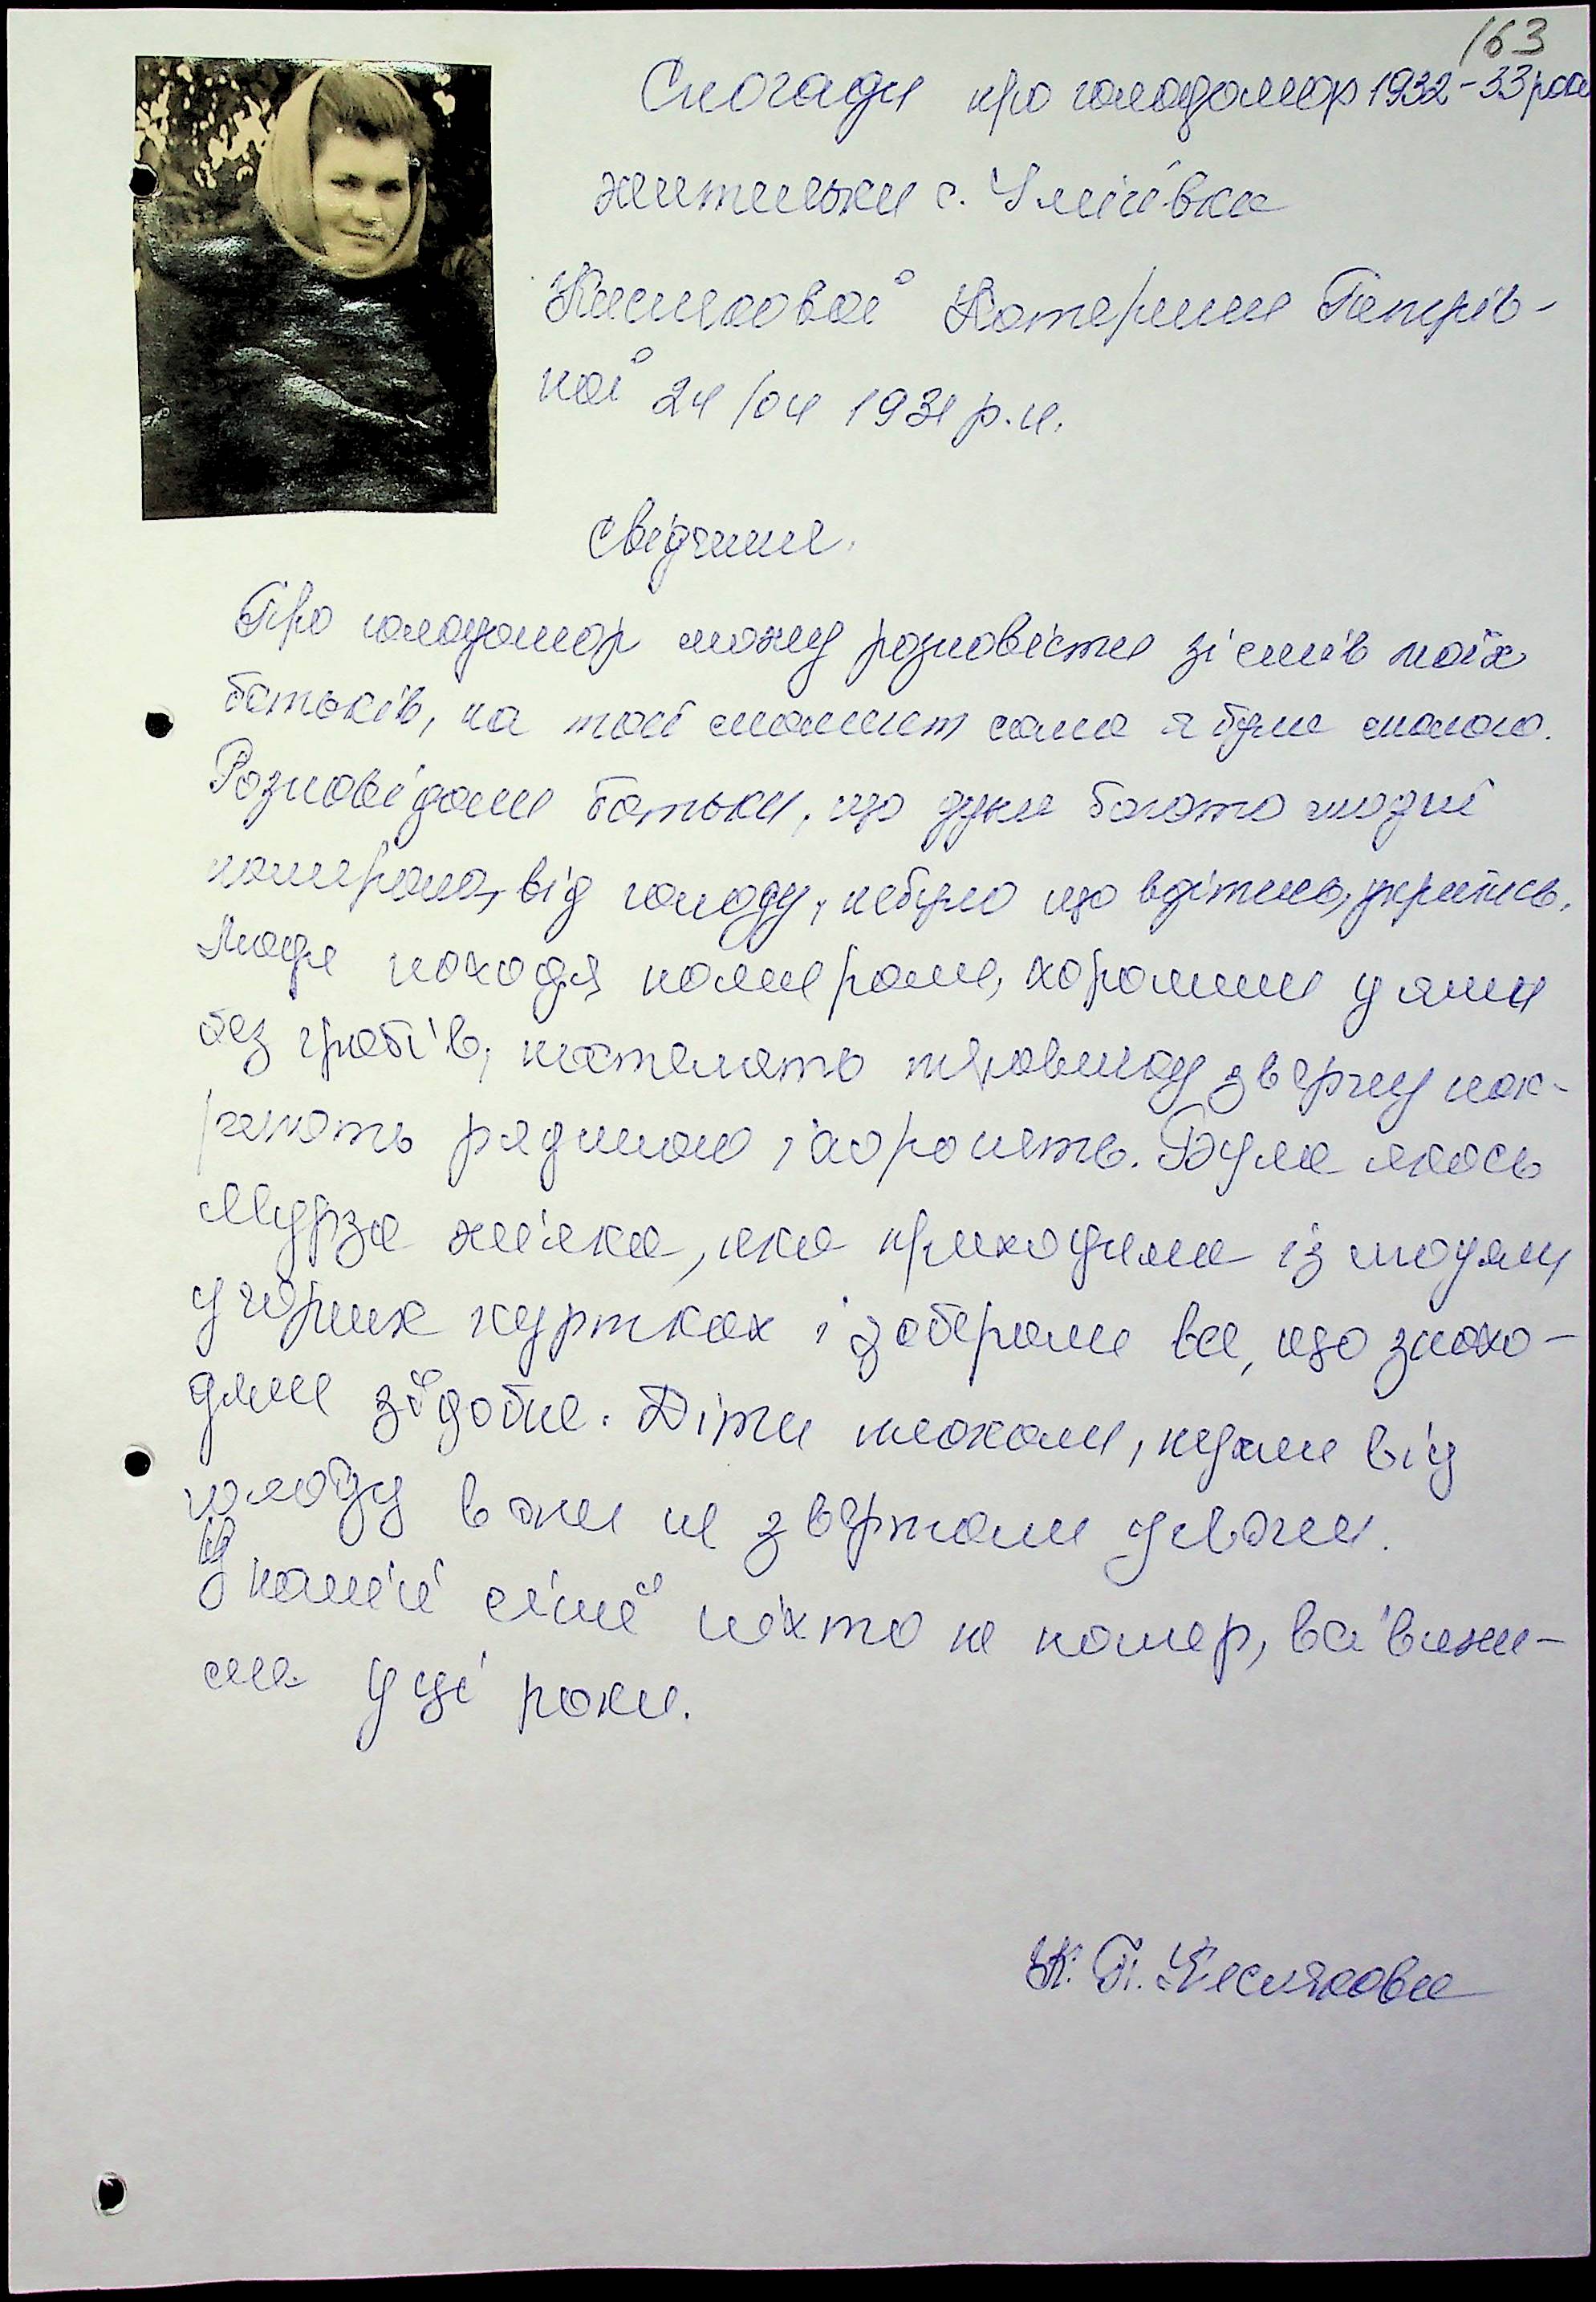 163
Спогади про голодомор 1932-33 роки
жительки с. Зміївка
Катерини Петрів-
ної 24/04 1931 р.н.
свідчина.
Про голодомор можу розповісти зі слів моїх
батьків, на той момент сама я була малою.
Розповідали батьки, що дуже багато людей
помирало, від голоду, небуло що вдітись, укритись.
Люде находу помирали, хоронили у ями
без гробів, настелять травичку зверху нак-
риють рядном і хоронять. Була якась
Мурза жінка, яка приходила із людьми
у чорних куртках і забирали все, що знахо-
дили з'їдобне. Діти плакали, пухли від
голоду вони не звертали уваги.
У нашій сім'ї ніхто не помер, всі вижи-
ли у ці роки.
К. П.